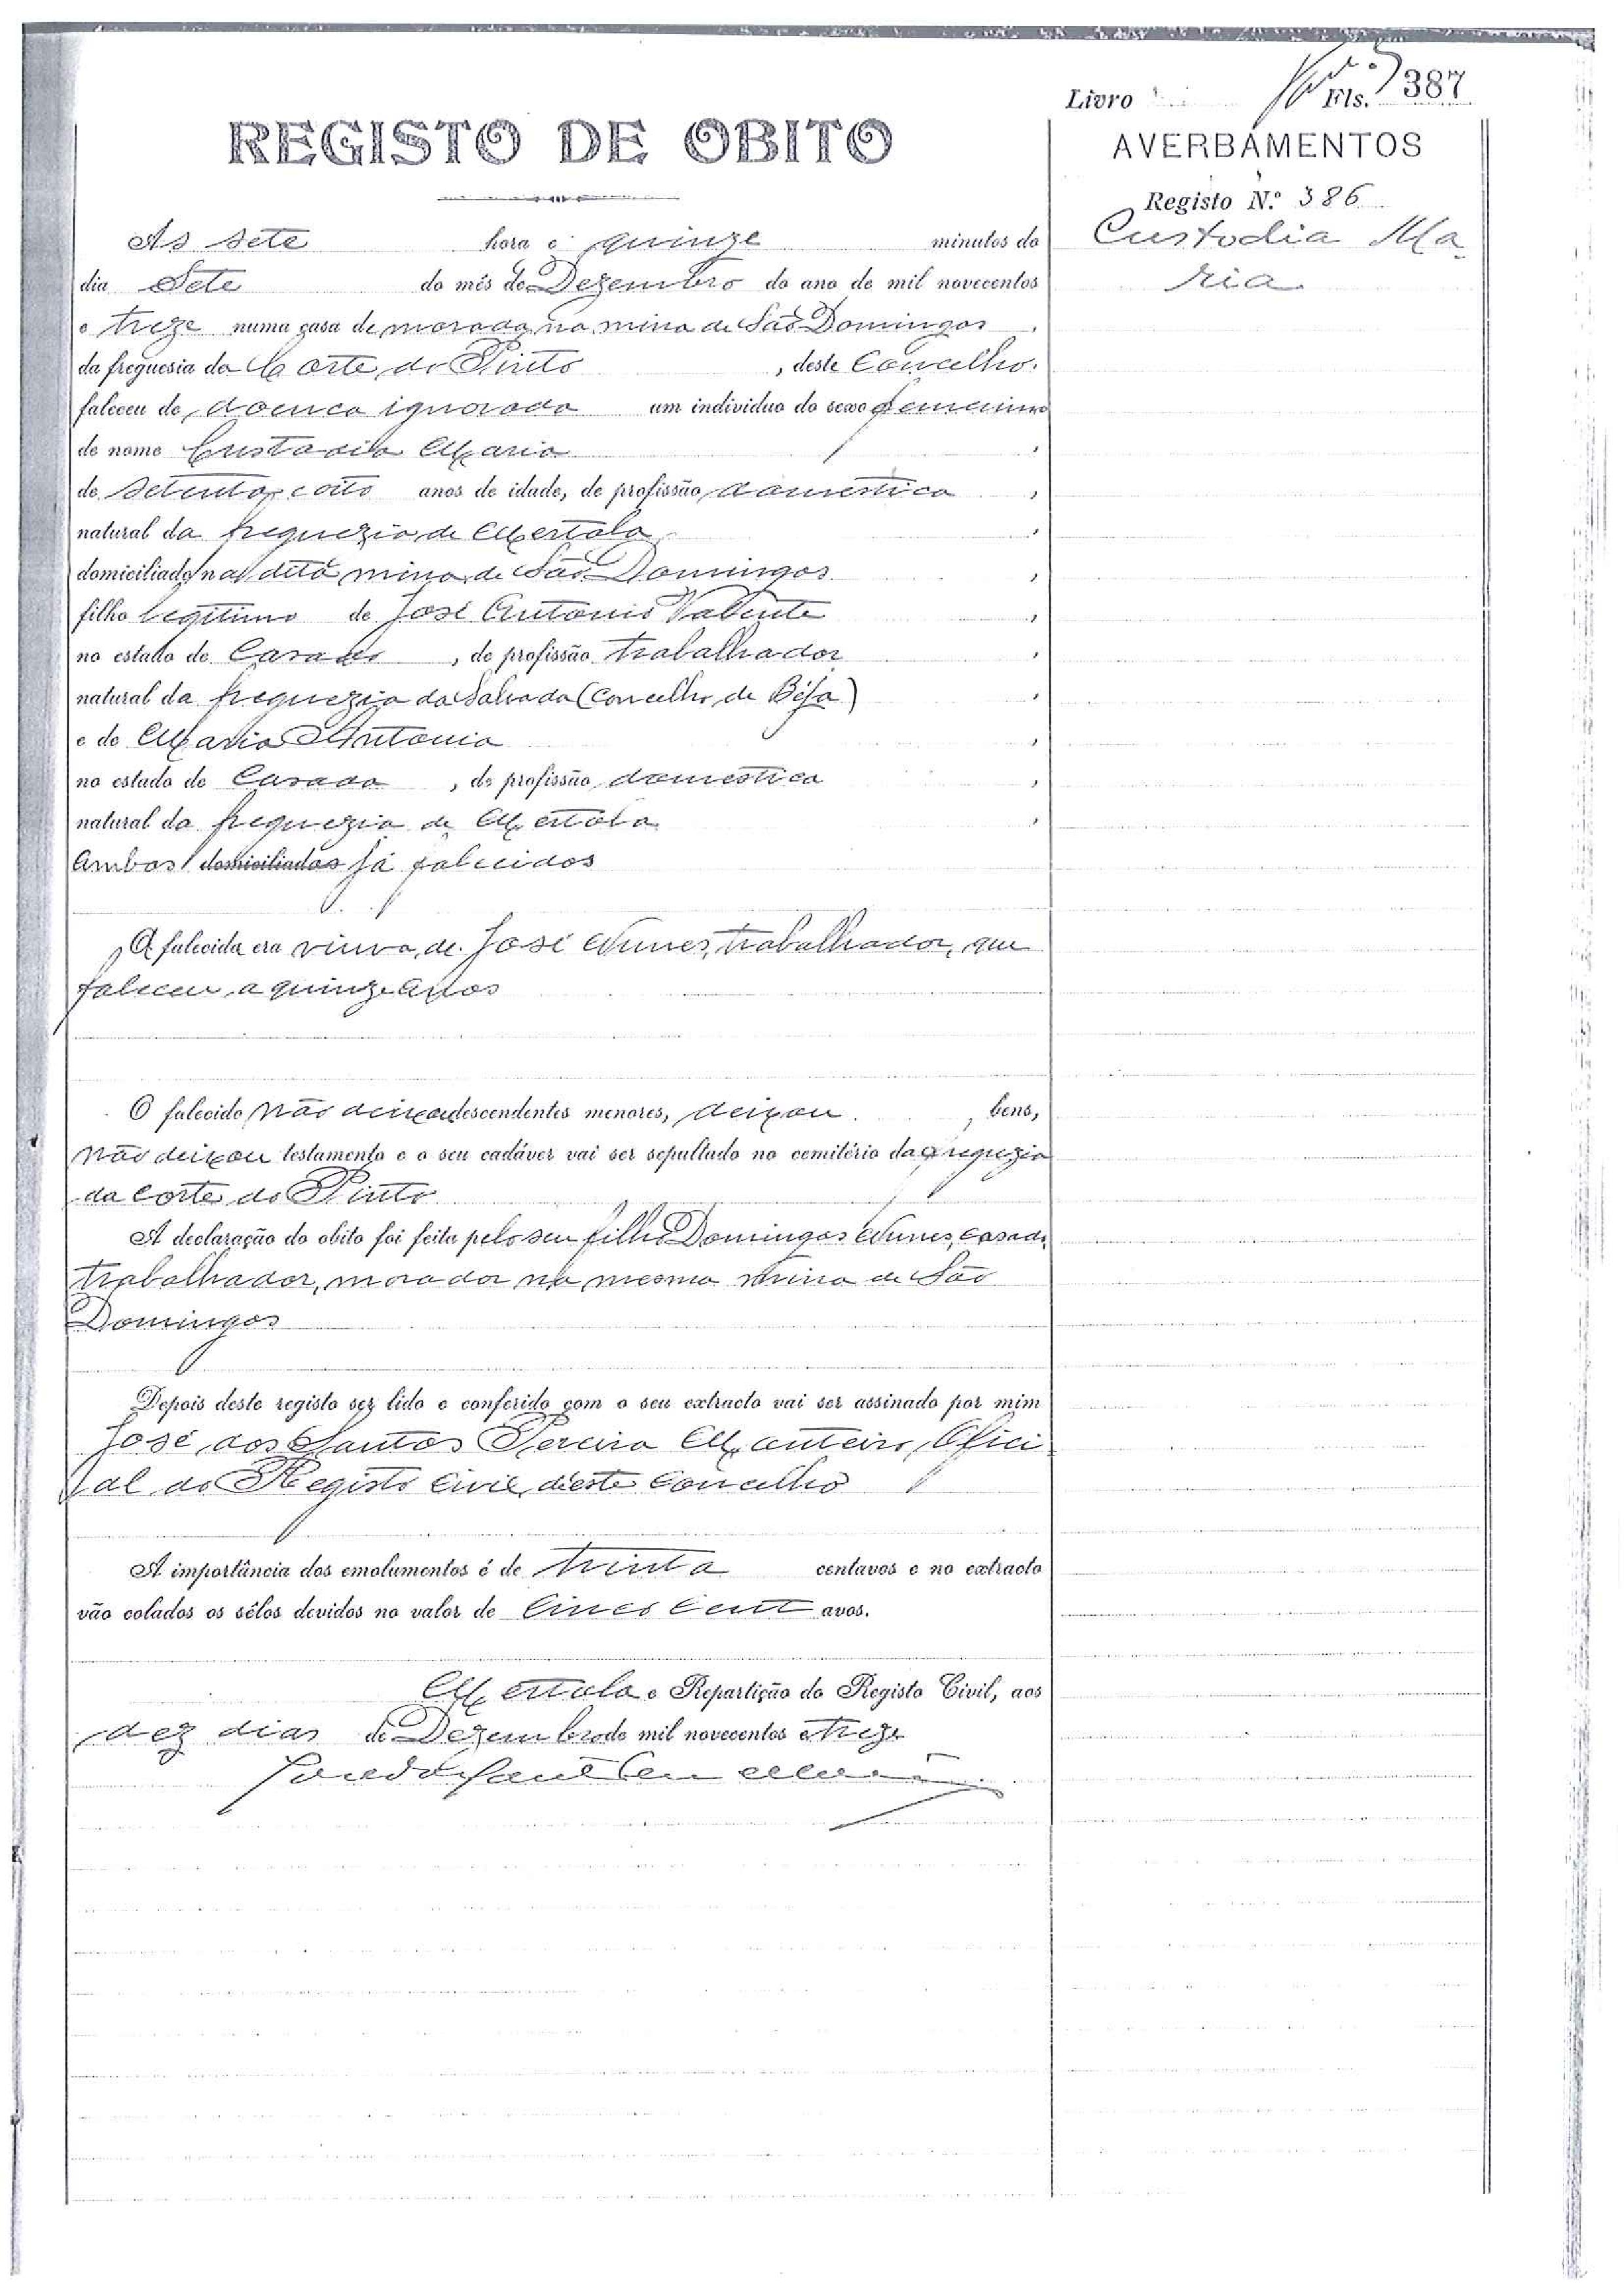 Livro Fls. 387
REGISTO DE OBITO
AVERBAMENTOS
Registo N.º 386
Custodia Ma-
ria
As sete hora e quinze minutos do
dia Sete do mês de Dezembro do ano de mil novecentos
e treze numa casa de morada na mina de São Domingos,
da freguesia da Corte do Pinto, deste Concelho.
faleceu de doença ignorada um individuo do sexo femenino
de nome Custodia Maria,
de setenta e oito anos de idade, de profissão domestica,
natural da freguezia de Mertola,
domiciliado na dita mina de São Domingos,
filho legitimo de José Antonio Valente,
no estado de Casado, de profissão trabalhador,
natural da freguezia da Salvada (Concelho de Béja),
e de Maria Antonia,
no estado de Casada, de profissão domestica,
natural da freguezia de Mertola,
Ambos domiciliados já falecidos
A falecida era viuva de José Nunes, trabalhador, que
faleceu a quinze anos
O falecido não deixou descendentes menores, deixou bens,
não deixou testamento e o seu cadáver vai ser sepultado no cemitério da freguezia
da Corte do Pinto
A declaração do obito foi feita pelo seu filho Domingos Nunes, casado,
trabalhador, morador na mesma mina de São
Domingos
Depois deste registo ser lido e conferido com o seu extracto vai ser assinado por mim
José dos Santos Pereira Monteiro, Ofici-
al do Registo Civil deste Concelho
A importância dos emolumentos é de trinta centavos e no extracto
vão colados os sêlos devidos no valor de Cinco Cent avos.
Mertola e Repartição do Registo Civil, aos
dez dias de Dezembro de mil novecentos e treze